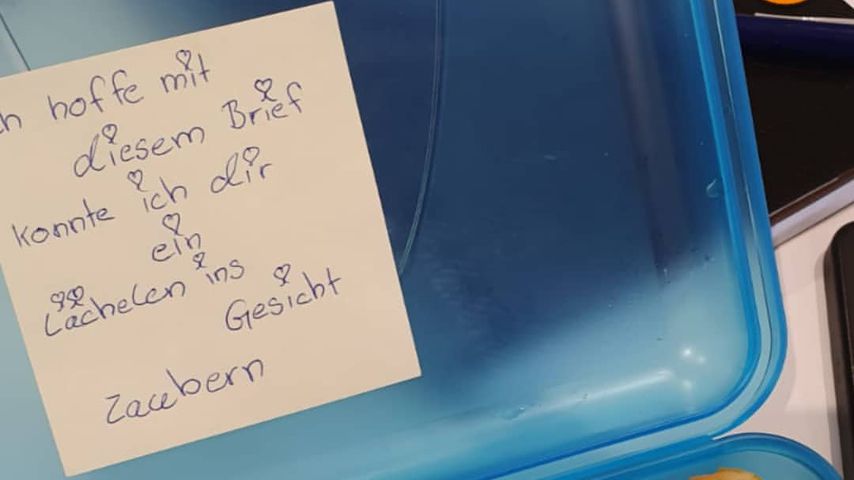 ch hoffe mit
diesem Brief
konnte ich dir
ein
Lächelen ins
Gesicht
zaubern